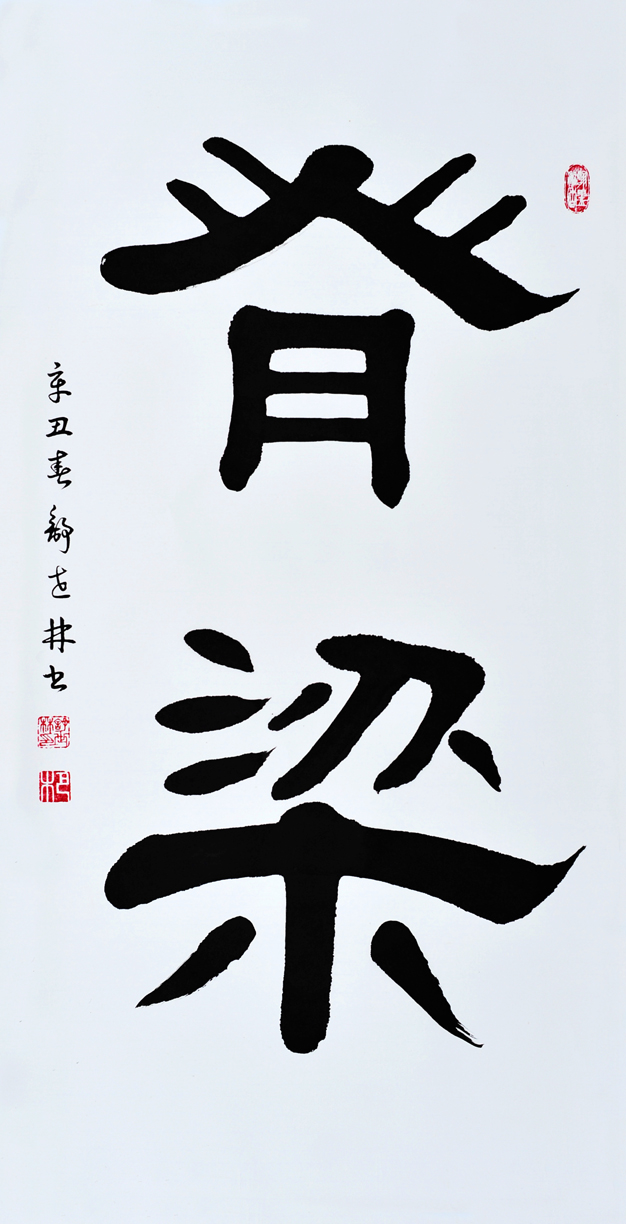 脊梁
辛丑春舒世林书